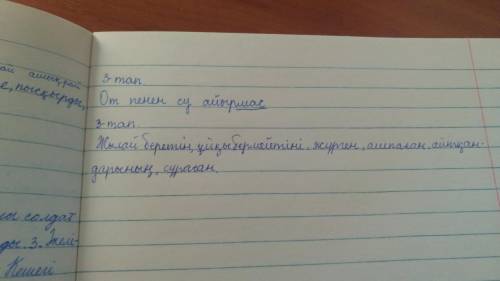 ай ашық-рай
е, пысқырды,
3-тап
От пенен су айырмас
3-тап.
Жылай беретін, ұйқы бермейтіні. жүрген, ашпаған. айтқан-
дарының, сұраған.
ғы солдат
ды. 3. Әкелі-
Кешегі